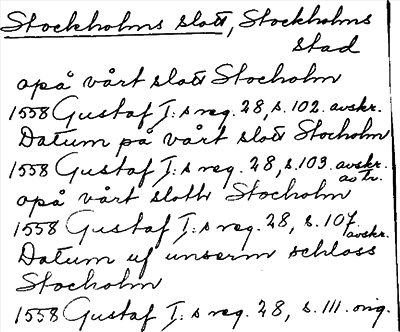 Stockholms slott, Stockholms
stad
opå vårt slott Stocholm
1558 Gustaf I:s reg. 28, s. 102. avskr.
Datum på vårt slott Stocholm
1558 Gustaf I:s reg. 28, s. 103. avskr.
opå vårt slotth Stocholm
1558 Gustaf I:s reg. 28, s. 107. avskr.
Datum uf unserm schloss
Stocholm
1558 Gustaf I:s reg. 28, s. 111. orig.